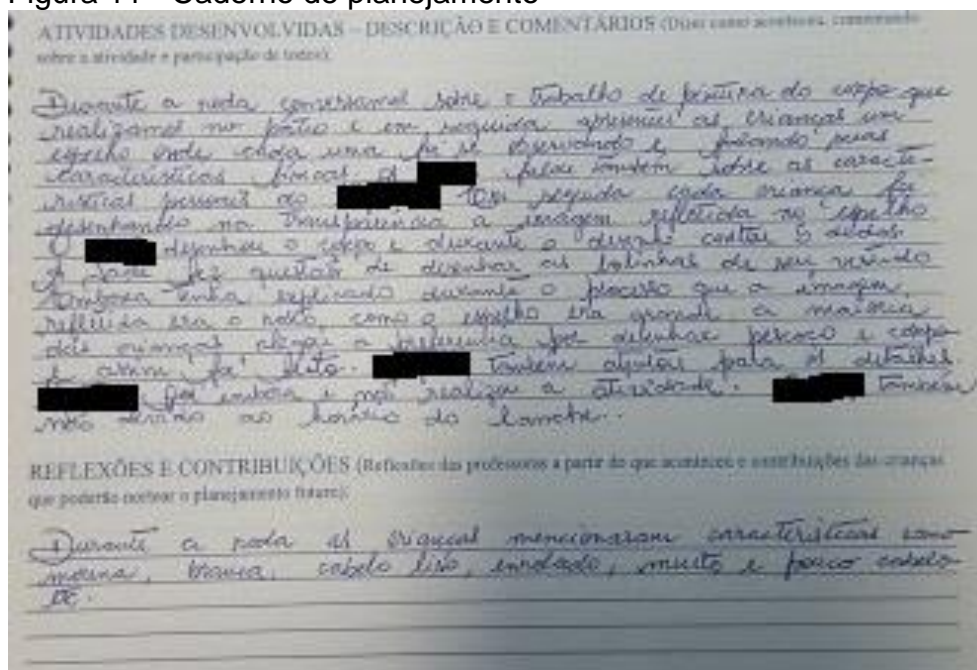 Figura 44 - Caderno de planejamento
ATIVIDADES DESENVOLVIDAS – DESCRIÇÃO E COMENTÁRIOS (Dizer como aconteceu, comentando
sobre a atividade e participação de todos).
Durante a roda conversamos sobre o trabalho de pintura do corpo que
realizamos no pátio e em seguida apresentei as crianças um
espelho onde cada uma foi se observando e falando suas
características físicas falou também sobre as caracte-
rísticas pessoais do Em seguida cada criança foi
desenhando na transparência a imagem refletida no espelho
O desenhou o corpo e durante o desenho contou 5 dedos
fez questão de desenhar as bolinhas de seu vestido
Embora tenha explicado durante o processo que a imagem
refletida era o rosto, como o espelho era grande a maioria
das crianças a preferência por desenhar pescoço e corpo
e assim foi feito. também para os detalhes.
foi embora e não realizou a atividade. também
não devido ao horário do lanche.
REFLEXÕES E CONTRIBUIÇÕES (Reflexões das professoras a partir do que aconteceu e contribuições das crianças
que poderão nortear o planejamento futuro):
Durante a roda as crianças mencionaram características como
morena, branca, cabelo liso, enrolado, muito e pouco cabelo